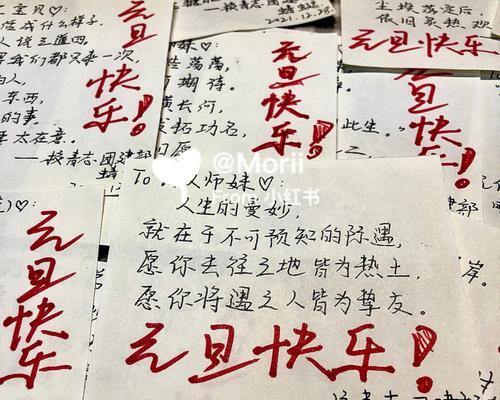 宝贝♡:
成什么样子,
人说三道四
我们都只来一次,
的人,
东西,
的事
太在意。
——校青志·团建部
元旦快乐!
——校青志·团建
2021.12.28.
妹♡:
荡荡,
期待。
长河,
拓功名,
元旦快乐!
尘埃落定后
依旧最热烈
元旦快乐
元旦快乐!
此生。
@Morii
From 小红书
元旦快乐
To 师妹♡:
人生的曼妙,
就在于不可预知的际遇,
愿你去往之地皆为热土,
愿你将遇之人皆为挚友。
元旦快乐!
岸。